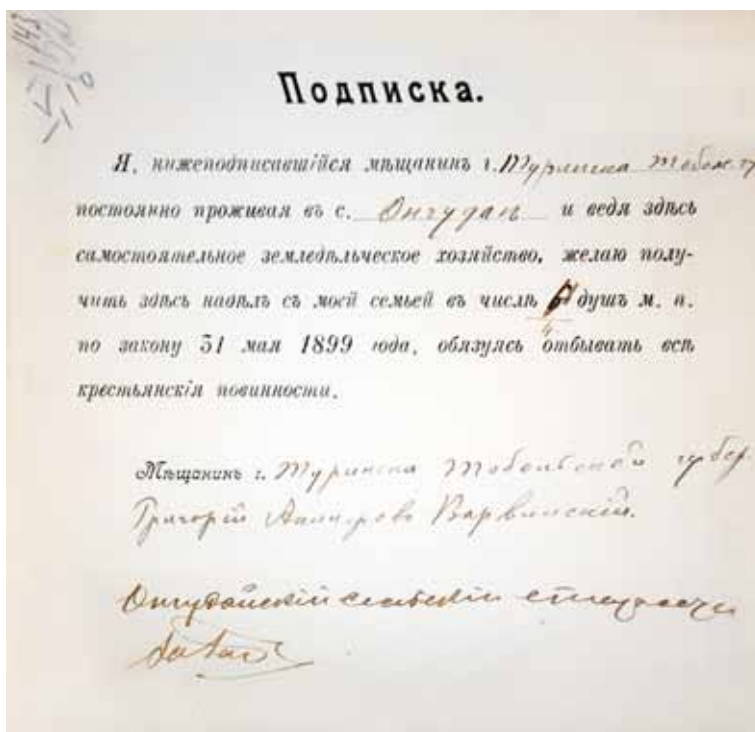 Подписка.
Я, нижеподписавшійся мѣщанинъ г. Туринска Тобол. г
постоянно проживая въ с. Онгудаѣ и ведя здѣсь
самостоятельное земледѣльческое хозяйство, желаю полу-
чить здѣсь надѣлъ съ моей семьей въ числѣ душъ м. п.
по закону 31 мая 1899 года, обязуясь отбывать всѣ
крестьянскія повинности.
Мѣщанинъ г. Туринска Тобольской губер.
Григорій Варвинскій.
Онгудайскій сельскій